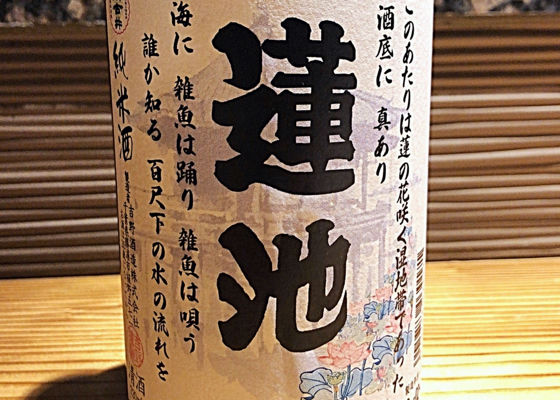 このあたりは蓮の花咲く湿地帯であった
酒底に 真あり
蓮池
海に 雑魚は踊り 雑魚は唄う
誰か知る 百尺下の水の流れを
純米酒
吉野酒造株式会社